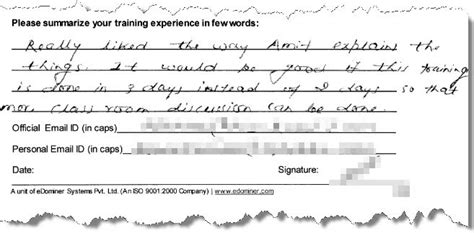 Please summarize your training experience in few words:
Really liked the way Amit explains the
things. It would be good if this training
is done in 3 days instead of 2 days so that
more class room discussion can be done.
Official Email ID (in caps)
Personal Email ID (in caps)
Date: Signature:
A unit of eDominer Systems Pvt. Ltd. (An ISO 9001:2000 Company) | www.edominer.com